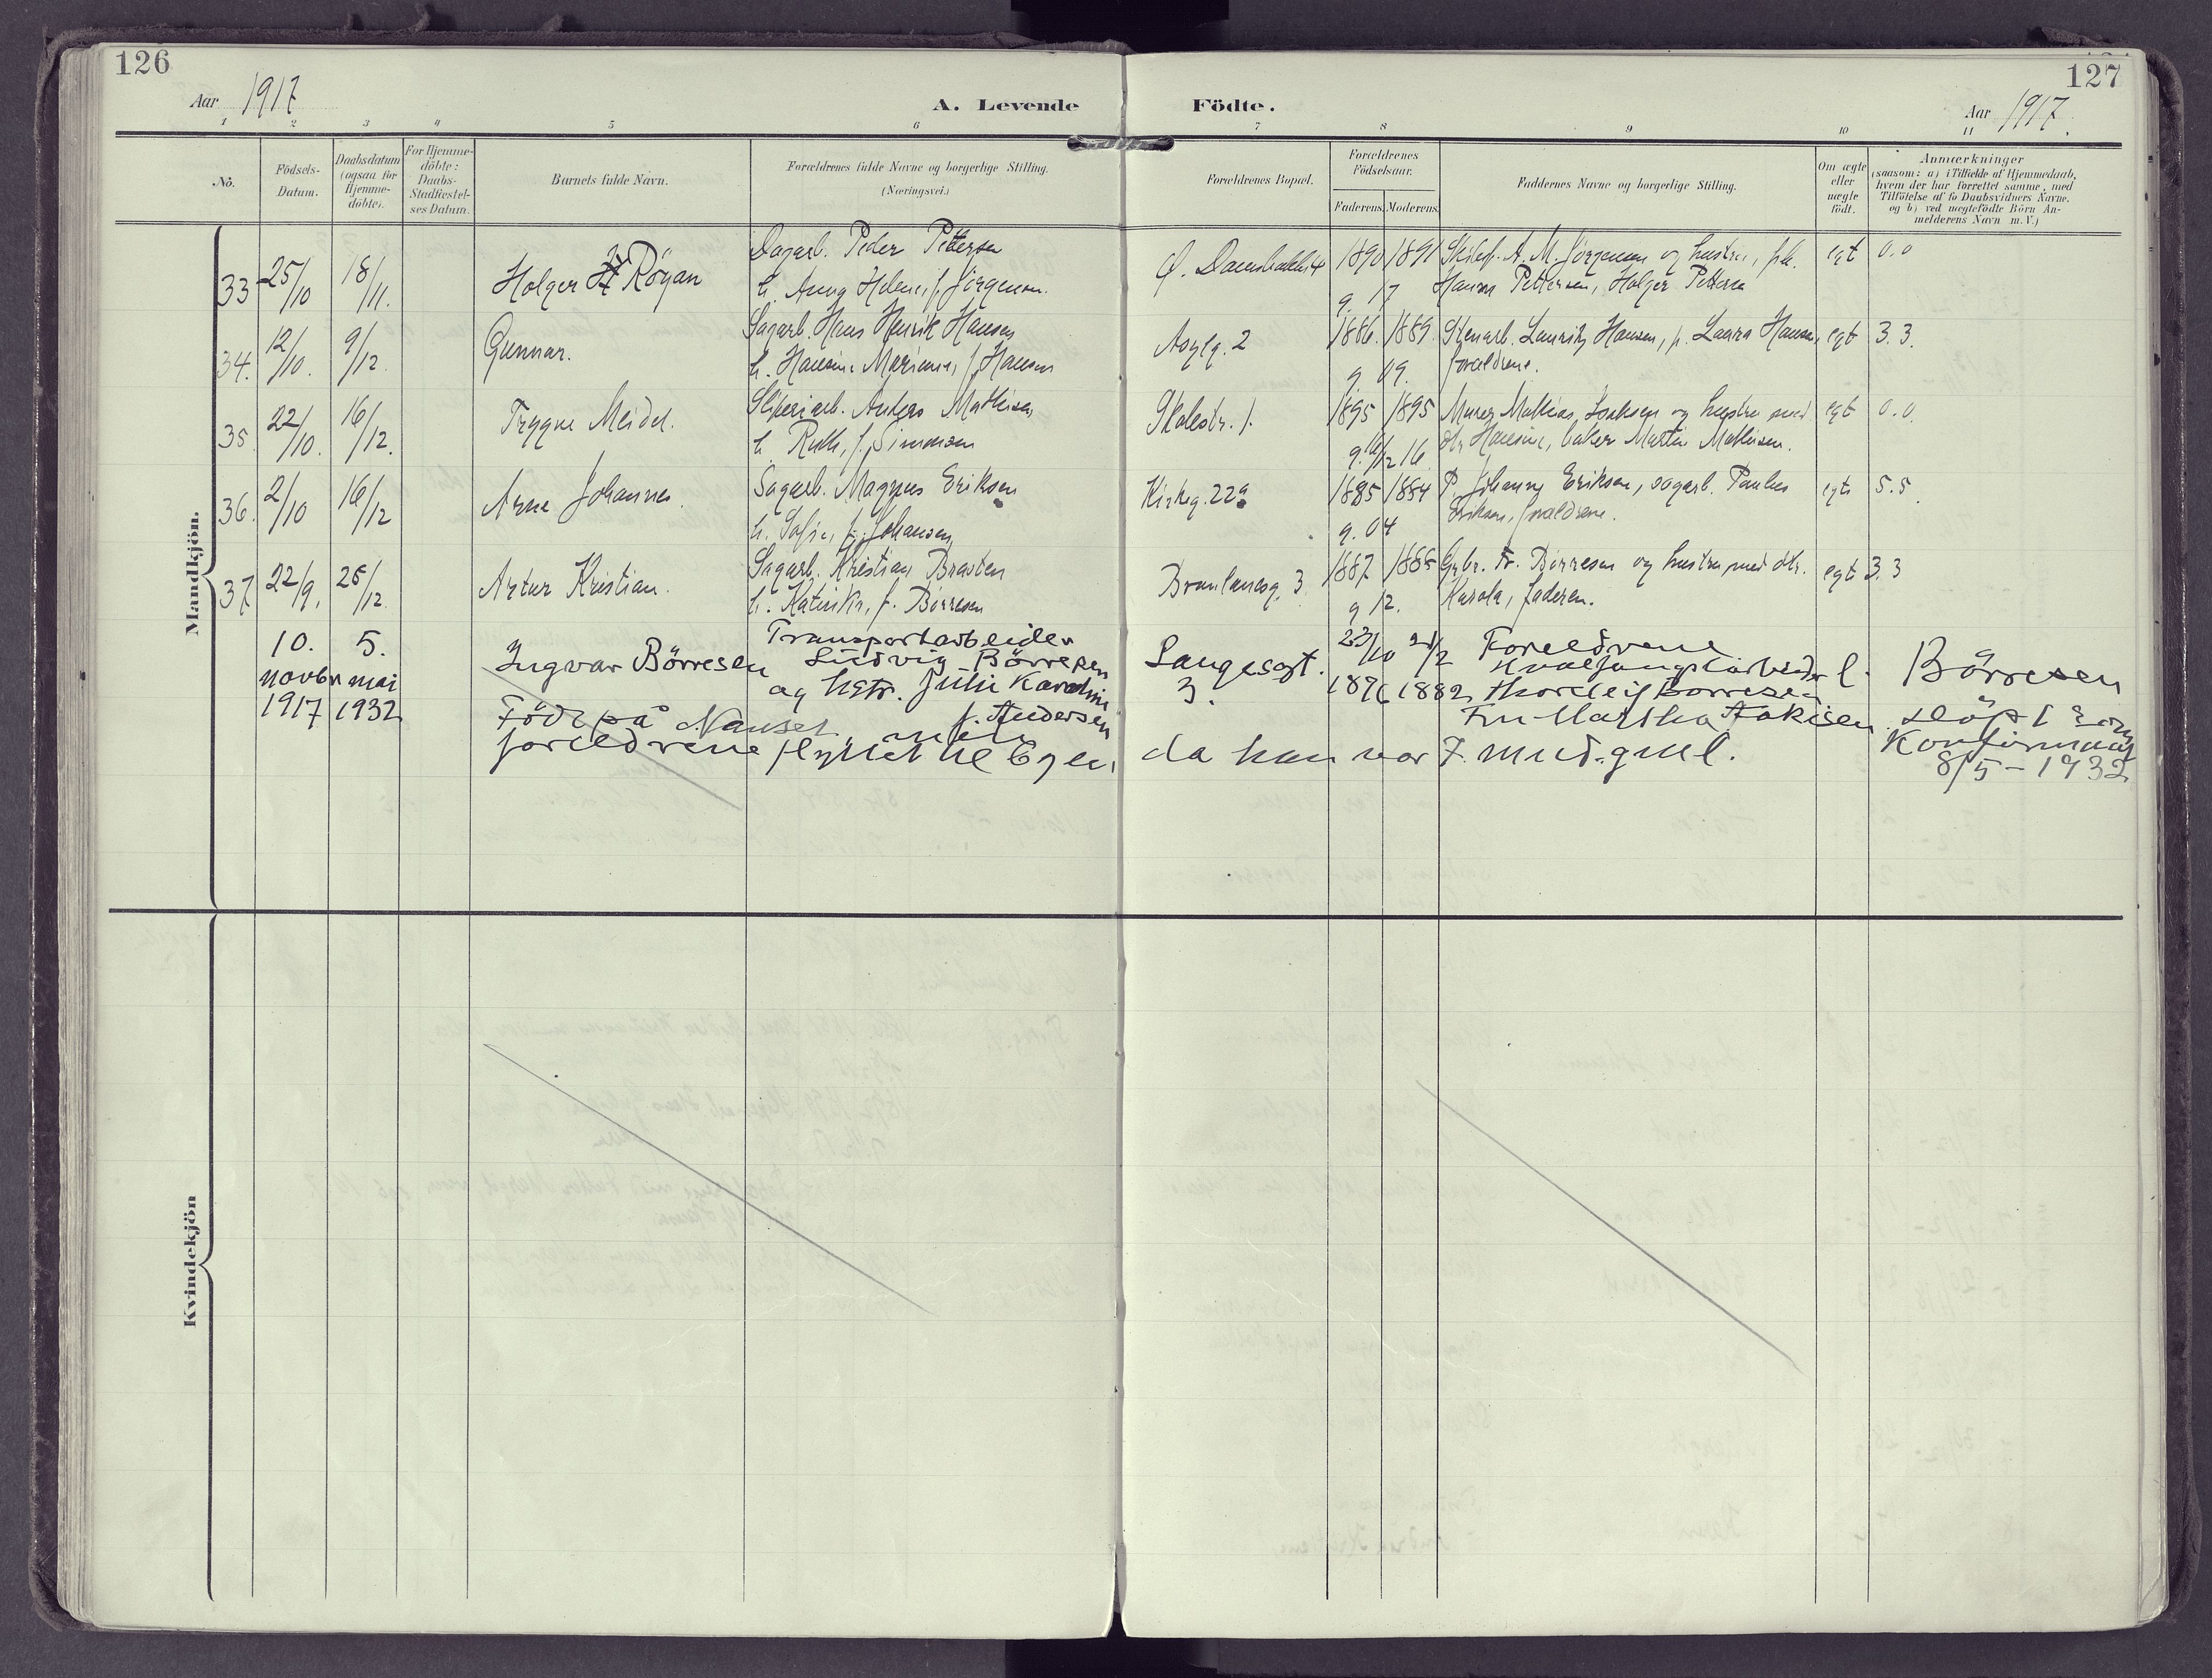 126
127
Aar 1917
A. Levende
Födte.
Aar 1917.
1 2 3 4 5 6 7 8 9 10 11
No.
Födsels-
Datum.
Daabsdatum
(ogsaa for
Hjemme-
döbte).
For Hjemme-
döbte:
Daabs-
Stadfæstel-
ses Datum.
Barnets fulde Navn.
Forældrenes fulde Navne og borgerlige Stilling.
(Næringsvei.)
Forældrenes Bopæl.
Forældrenes
Födselsaar.
Faderens.
Moderens.
Faddernes Navne og borgerlige Stilling.
Om ægte
eller
uægte
födt.
Anmærkninger
(saasom: a) i Tilfælde af Hjemmedaab,
hvem der har forrettet samme, med
Tilföielse af to Daabsvidners Navne.
og b) ved uægtefödte Börn An-
melderens Navn m. V.)
Mandkjön.
33 25/10 18/11. Holger Röyan
Dagarb. Peder Pettersen
h. Anna Helene, f. Jörgensen.
1890 1891
g. 17
A. M. Jörgensen og hustru, pik.
Hanna Pettersen, Holger Pettersen
egt 0.0
34. 12/10. 9/12. Gunnar.
Sagarb. Hans Henrik Hansen
h. Hansine Mariane, f. Hansen
Asylg. 2
1886. 1889.
g. 09.
Stenarb. Lauritz Hansen, p. Laura Hansen,
forældrene.
egt 3.3.
35. 22/10. 16/12. Trygve Meidel.
Sliperiarb. Anders Mathisen
h. Ruth, f. Simonsen
Skolestr. 1.
1895 1895
g. 16/12 16.
Murer Mathias Isaksen og hustru med
dtr. Hansine, baker Martin Mathisen.
egt 0.0
36. 2/10 16/12 Arne Johannes.
Sagarb. Magnus Eriksen
h. Sofie, f. Johansen
Kirkeg. 22a
1885 1884
g. 04
P. Johanne Eriksen, sagarb. Paulus
Eriksen, forældrene.
egt 5.5.
37. 22/9. 26/12. Artur Kristian.
Sagarb. Kristian Braaten
h. Katinka, f. Börresen
3
1887 1886
g 12.
Fr. Börresen og hustru med dtr.
Karola, faderen.
egt 3.3
10. novbr 1917
5. mai 1932
Ingvar Börresen
Transportarbeider
Ludvig Börresen
og hstr. Julie Karoline
f. Andersen
Langesgt. 3.
23/10 1876
21/2 1882
Foreldrene
Hvalfangstarbeider
Thorleif Börresen
Fru Martha Aakisen
Börresen
döpt som
Konfirmant
8/5 - 1932
Födt på Nanset men
foreldrene flyttet til Byen
da han var 7 mnd. gml.
Kvindekjön